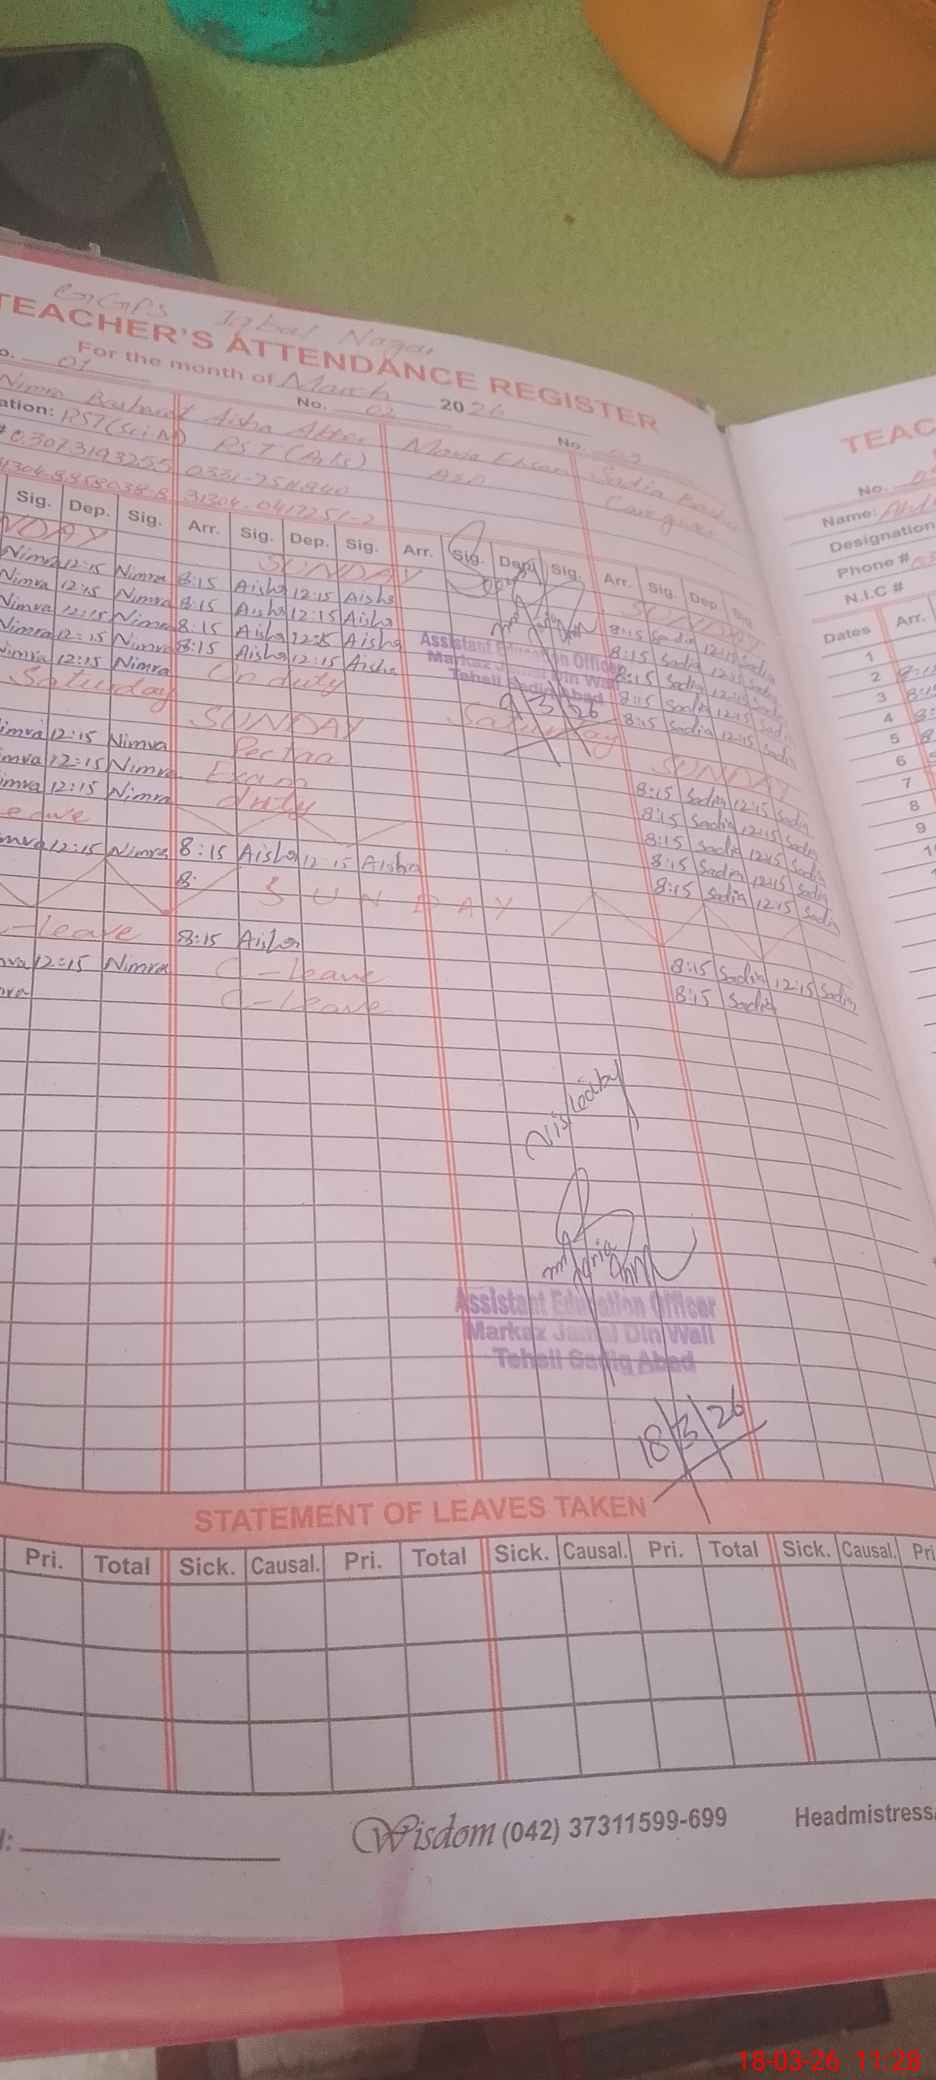 GGPS Iqbal Nagar
TEACHER'S ATTENDANCE REGISTER
For the month of March 2026
01 No. 02 No. 03
Nimra Aisha Maria Sadia
ation: RST(Sci.M) RST (Arts) Caregiver
Sig. Dep. Sig. Arr. Sig. Dep. Sig. Arr. Sig. Dep. Sig. Arr. Sig. Dep. Sig.
NDAY SUNDAY
Nimra 12:15 Nimra 8:15 Aisha 12:15 Aisha 8:15 Sadia 12:15 Sadia
Nimra 12:15 Nimra 8:15 Aisha 12:15 Aisha 8:15 Sadia 12:15 Sadia
Nimra 12:15 Nimra 8:15 Aisha 12:15 Aisha 8:15 Sadia 12:15 Sadia
Nimra 12:15 Nimra 8:15 Aisha 12:15 Aisha 8:15 Sadia 12:15 Sadia
Nimra 12:15 Nimra On duty 8:15 Sadia 12:15 Sadia
Assistant Education Officer
Markaz Jamal Din Wali
Tehsil Sadiq Abad
9/3/26
Saturday Saturday
SUNDAY SUNDAY
imra 12:15 Nimra Pectaa 8:15 Sadia 12:15 Sadia
imra 12:15 Nimra Exam 8:15 Sadia 12:15 Sadia
imra 12:15 Nimra duty 8:15 Sadia 12:15 Sadia
eave 8:15 Sadia 12:15 Sadia
mra 12:15 Nimra 8:15 Aisha 12:15 Aisha 8:15 Sadia 12:15 Sadia
8: SUNDAY
-leave 8:15 Aisha
mra 12:15 Nimra C-Leave 8:15 Sadia 12:15 Sadia
mra C-Leave 8:15 Sadia
Visited by
Assistant Education Officer
Markaz Jamal Din Wali
Tehsil Sadiq Abad
18/3/26
STATEMENT OF LEAVES TAKEN
Pri. Total Sick. Causal. Pri. Total Sick. Causal. Pri. Total Sick. Causal. Pri
Wisdom (042) 37311599-699 Headmistress
TEAC
No.
Name:
Designation
Phone #
N.I.C #
Dates Arr.
1
2
3
4
5
6
7
8
9
18-03-26 11:28